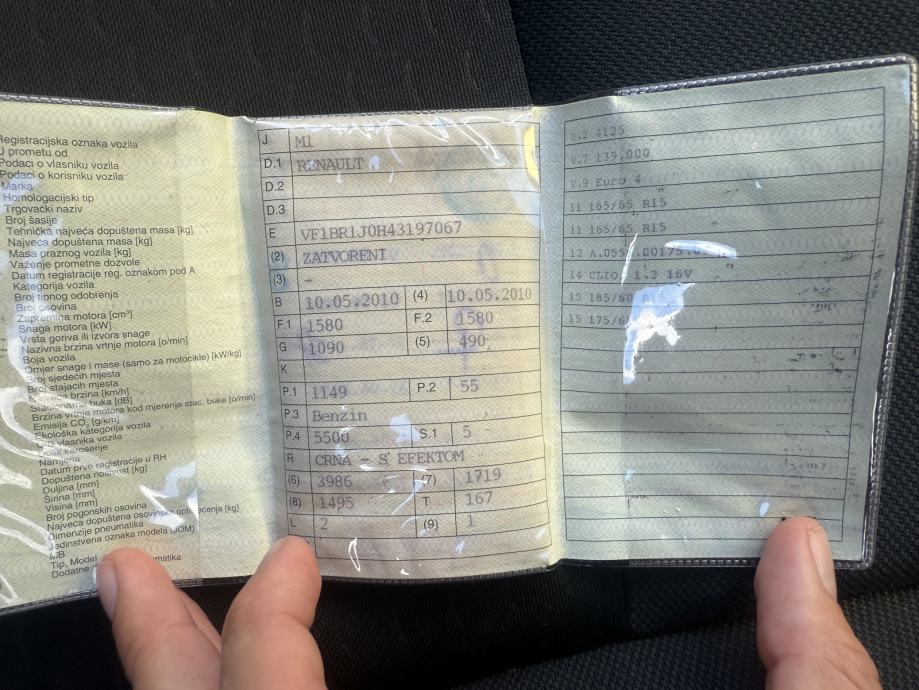 Registracijska oznaka vozila
U prometu od
Podaci o vlasniku vozila
Podaci o korisniku vozila
Marka
Homologacijski tip
Trgovački naziv
Broj šasije
Tehnička najveća dopuštena masa [kg]
Najveća dopuštena masa [kg]
Masa praznog vozila [kg]
Važenje prometne dozvole
Datum registracije reg. oznakom pod A
Kategorija vozila
Broj tipnog odobrenja
Broj osovina
Zapremina motora [cm³]
Snaga motora [kW]
Vrsta goriva ili izvora snage
Nazivna brzina vrtnje motora [o/min]
Boja vozila
Omjer snage i mase (samo za motocikle) [kW/kg]
Broj sjedećih mjesta
Broj stajaćih mjesta
Najveća brzina [km/h]
Stacionarna buka [dB]
Brzina vrtnje motora kod mjerenja stac. buke [o/min]
Emisija CO₂ [g/km]
Ekološka kategorija vozila
vlasnika vozila
Oblik karoserije
Namjena
Datum prve registracije u RH
Dopuštena nosivost [kg]
Duljina [mm]
Širina [mm]
Visina [mm]
Broj pogonskih osovina
Najveća dopuštena osovinska [kg]
Dimenzije pneumatika
Jedinstvena oznaka modela (JOM)
MB
Tip, Model
Dodatne
J M1
D.1 RENAULT
D.2
D.3
E VF1BR1J0H43197067
(2) ZATVORENI
(3) -
B 10.05.2010 (4) 10.05.2010
F.1 1580 F.2 1580
G 1090 (5) 490
K
P.1 1149 P.2 55
P.3 Benzin
P.4 5500 S.1 5
R CRNA - S EFEKTOM
(6) 3986 (7) 1719
(8) 1495 T 167
L 2 (9) 1
U.2 4125
V.7 139,000
V.9 Euro 4
11 165/65 R15
11 165/65 R15
12 A.055
14 CLIO 1.2 16V
15 185/60 R15
15 175/6